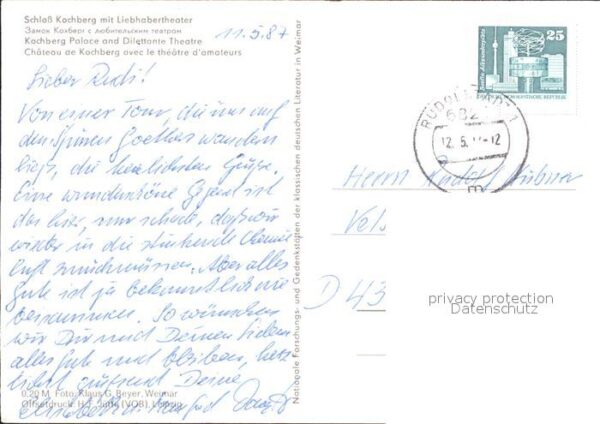 Schloß Kochberg mit Liebhabertheater
Замок Кохберг с любительским театром
Kochberg Palace and Dilettante Theatre
Château de Kochberg avec le théâtre d'amateurs
11.5.87
Lieber Rudi!
Von einer Tour, die uns auf
den Spuren Goethes wandern
ließ, die herzlichsten Grüße.
Eine wunderschöne Gegend ist
das hier, nur schade, daß wir
wieder in die stinkende Chemie
luft zurückmüssen. Aber alles
Gute ist ja bekanntlich nie
beisammen. So wünschen
wir Dir und Deinen Lieben
alles Gute und bleiben, herz
lichst grüßend Deine
Elisabeth Manfred
0,20 M Foto: Klaus G. Beyer, Weimar
Offsetdruck: H. F. Jütte (VOB), Leipzig
Nationale Forschungs- und Gedenkstätten der klassischen deutschen Literatur in Weimar
25
Berlin, Alexanderplatz
DEUTSCHE DEMOKRATISCHE REPUBLIK
RUDOLSTADT 1
682
12.5.-12
m
Herrn
D 43
privacy protection
Datenschutz